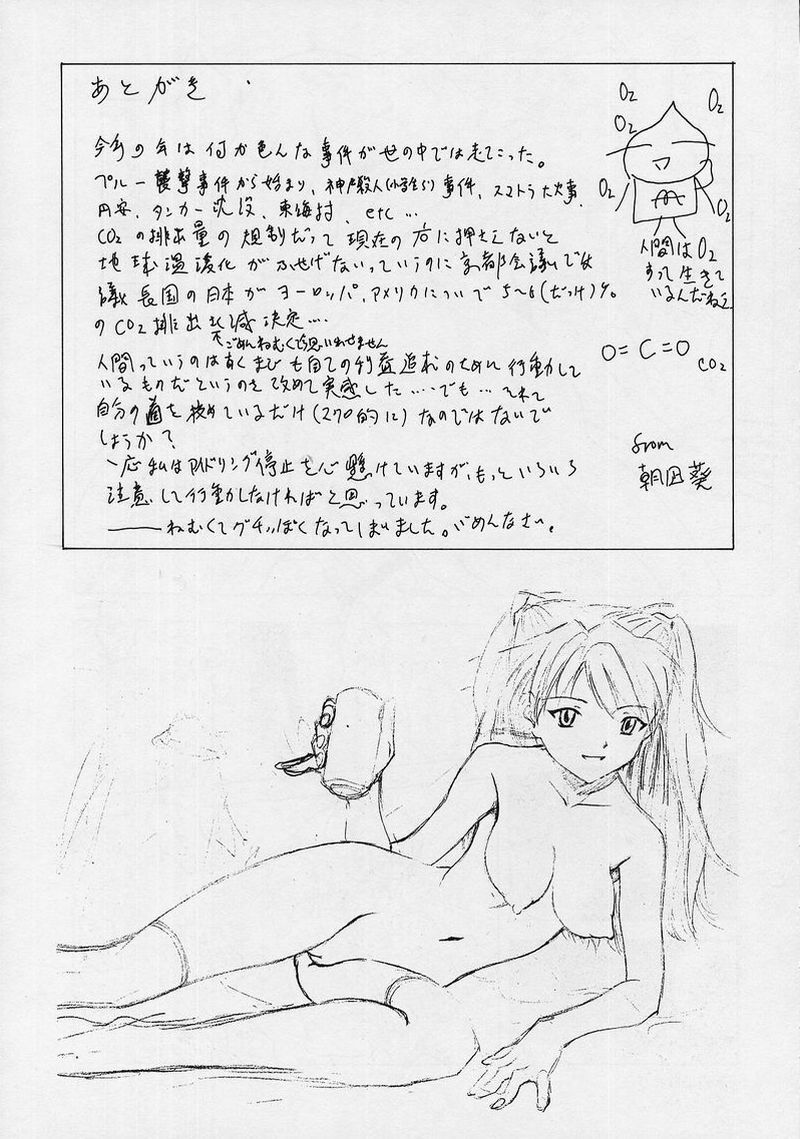 あとがき
今年の年は何か色んな事件が世の中では起こった。
ペルー襲撃事件から始まり、神戸殺人(小学生)事件、スマトラ大火事、
円安、タンカー沈没、東海村、etc…
CO2の排出量の規制だって現在の
地球温暖化がふせげないっていうのに京都会議では
議長国の日本がヨーロッパ、アメリカについで5~6(だっけ)%。
のCO2排出削減決定…
ごめんねむくて思い出せません
人間っていうのは
いるものだというのを改めて実感した……でも…それって
自分の首を絞めているだけ なのではないで
しょうか?
一応私はアイドリング停止を心懸けていますが、もっといろいろ
注意して行動しなければと思っています。
――ねむくてグチっぽくなってしまいました。ごめんなさい。
O2
O2
O2
O2
O2
人間はO2
すって生きて
いるんだねえ
O=C=O
CO2
from
朝凪葵